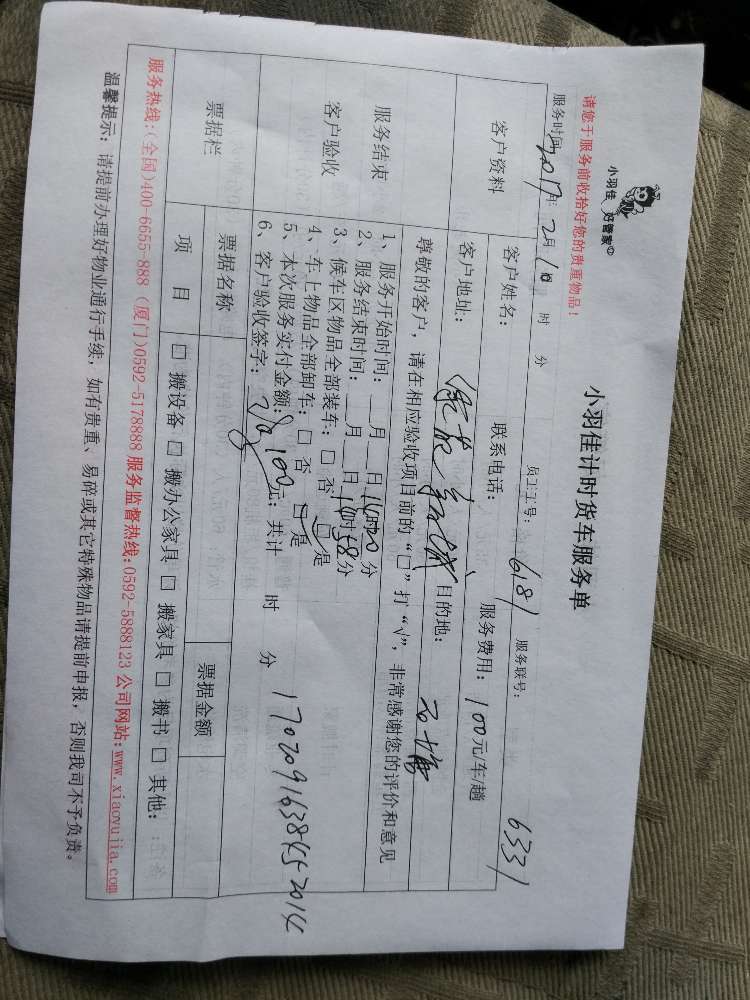 小羽佳 好管家
小羽佳计时货车服务单
请您于服务前收拾好您的贵重物品！
服务时间 2017年 2月 10 时 分 员工工号： 6181 服务联号： 6331
客户资料
客户姓名： 联系电话： 服务费用： 100元/车/趟
客户地址： 目的地：
尊敬的客户，请在相应验收项目前的“□”打“√”，非常感谢您的评价和意见
服务结束
客户验收
1、服务开始时间：__月__日 分
2、服务结束时间：__月__日 分
3、候车区物品全部装车：□ 否 是
4、车上物品全部卸车：□ 否 □ 是
5、本次服务实付金额： 100元；共计 时 分
6、客户验收签字：
票据栏 票据名称 票据金额
项 目 □ 搬设备 □ 搬办公家具 □ 搬家具 □ 搬书 □ 其他：
服务热线：(全国)400-6655-888 (厦门)0592-5178888 服务监督热线:0592-5888123 公司网站:www.xiaoyujia.com
温馨提示：请提前办理好物业通行手续，如有贵重、易碎或其它特殊物品请提前申报，否则我司不予负责。